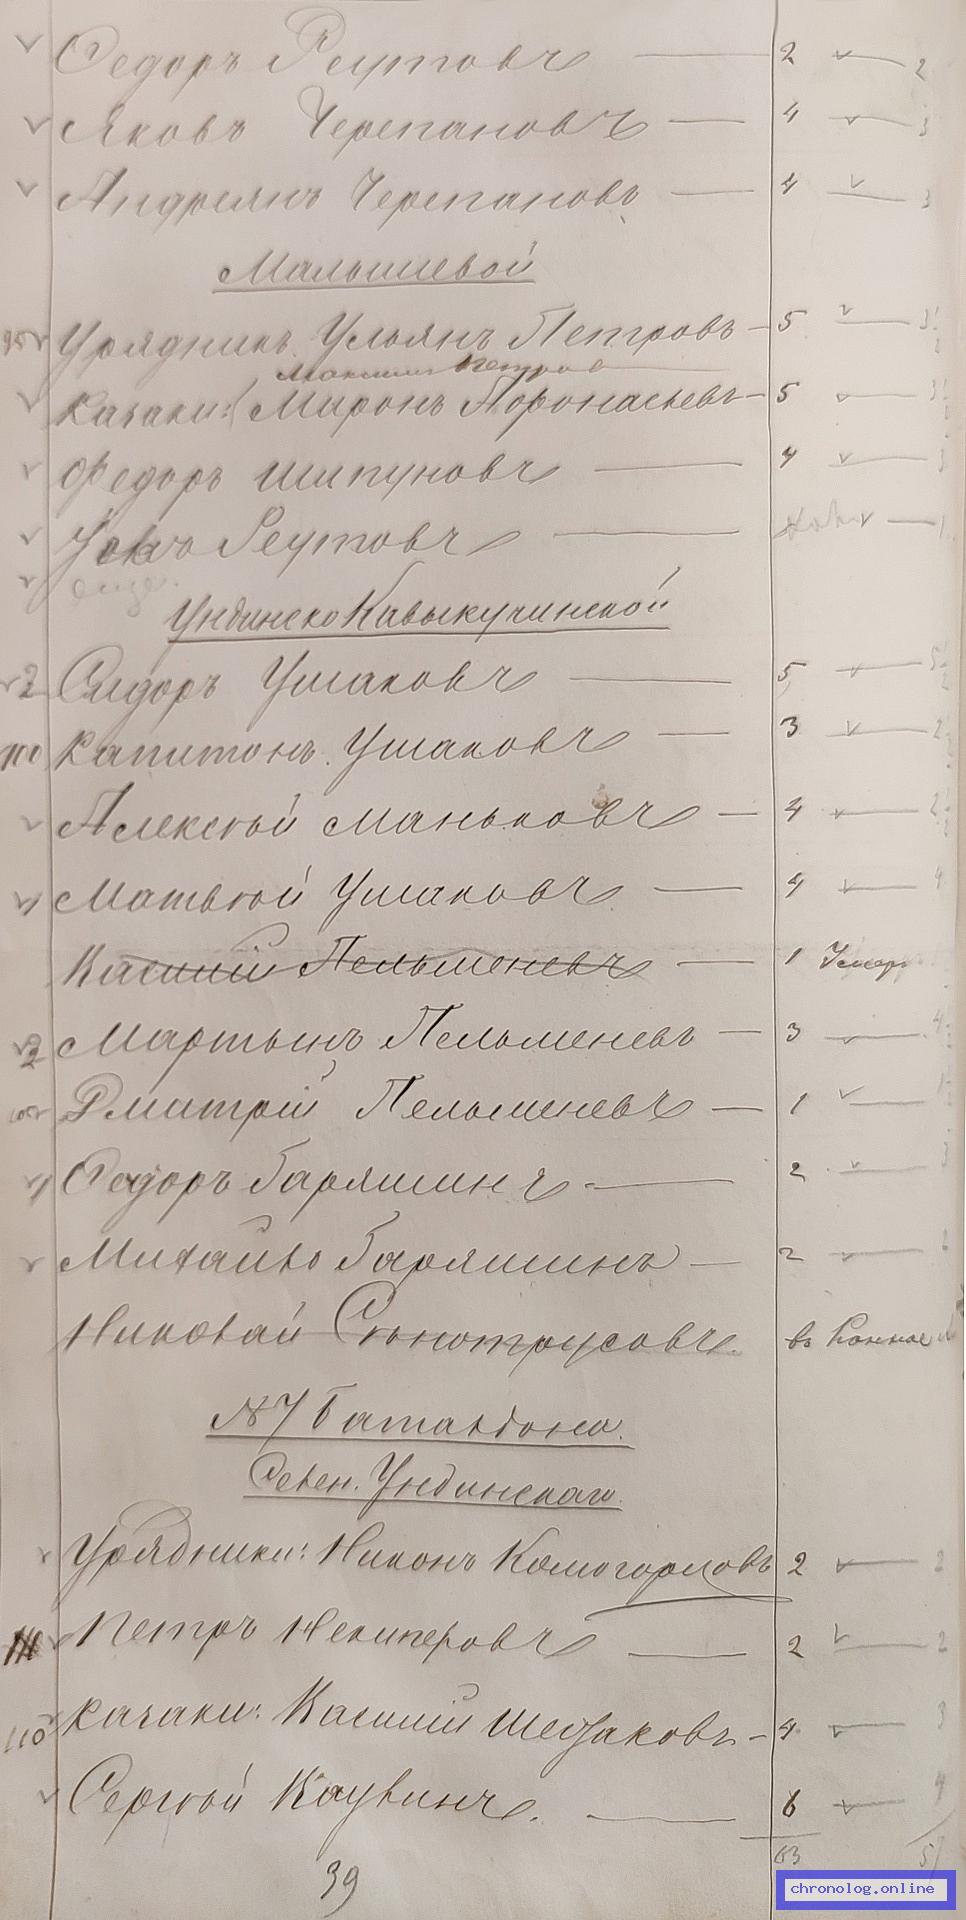 Федоръ Реутовъ — 2 — 2
Яковъ Черепановъ — 4 — 3
Андреянъ Черепановъ — 4 — 3
Малышевой
Урядникъ Ульянъ Петровъ — 5
Максим Петров
Казаки: Миронъ Афонасьевъ — 5
Федоръ Шипуновъ — 4 — 3
Реутовъ — 1
еще
Ундинско Кавыкучинской
Сидоръ Ушаковъ — 5
100 Капитонъ Ушаковъ — 3
Алексѣй Маньковъ — 4
Матвѣй Ушаковъ — 4 — 4
Василій Пельменевъ — 1 Умер
Мартынъ Пельменевъ — 3
Дмитрій Пельменевъ — 1
Федоръ Гаряшинъ — 2
Михайло Гаряшинъ — 2 — 2
Николай Сѣнотрусовъ. въ Конное
№ 7 Баталіона.
Селен. Ундинскаго
Урядники: Никонъ Комогорловъ 2 — 2
Петръ Некиперовъ — 2 — 2
110 Казаки: Василій Шестаковъ — 4 — 3
Сергѣй Каувинъ. — 6 — 4
63 57
39
chronolog.online